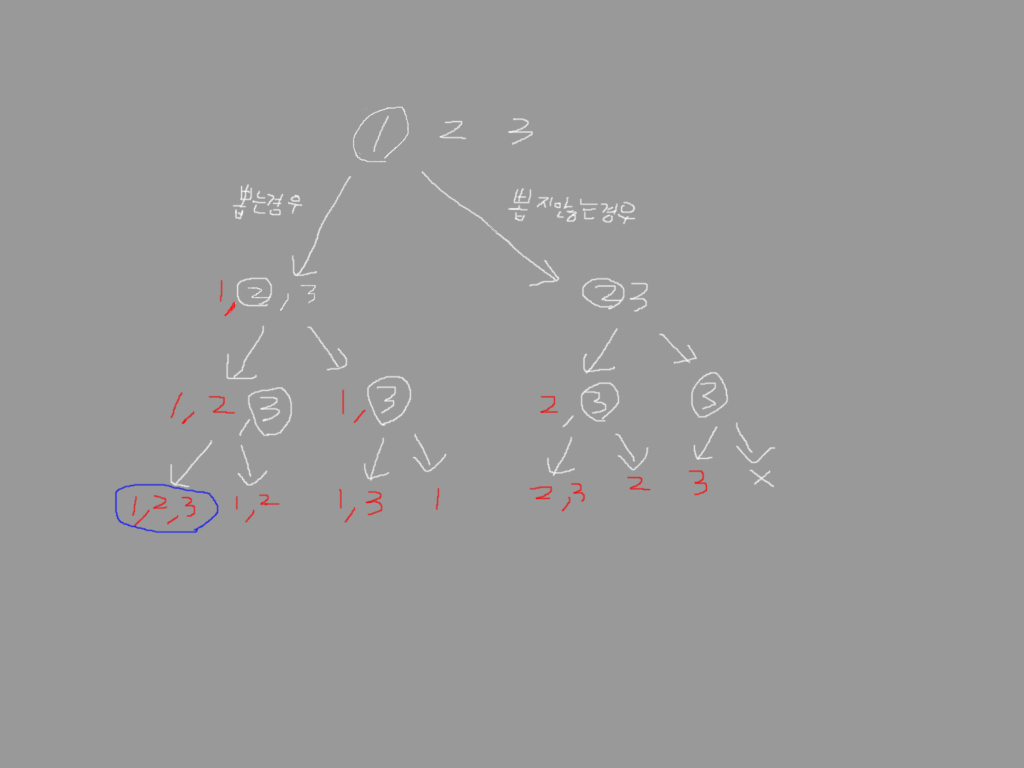 1 2 3
뽑는경우 뽑지않는경우
1,2,3 2 3
1,2,3 1,3 2,3 3
1,2,3 1,2 1,3 1 2,3 2 3 x